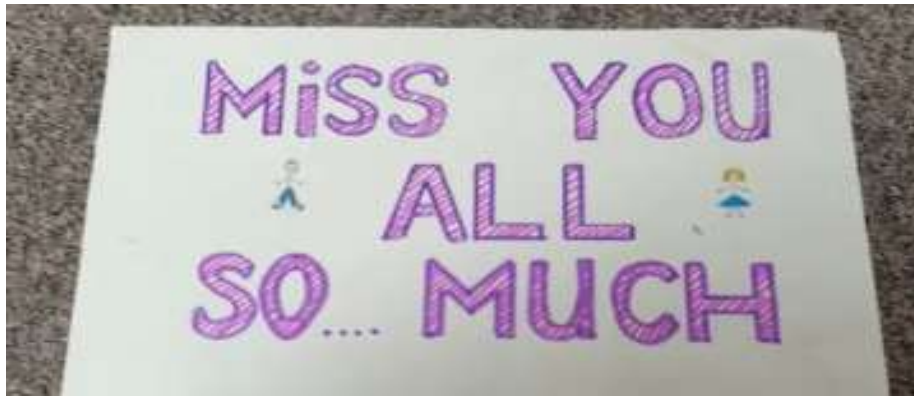 MiSS YOU
ALL
SO.... MUCH